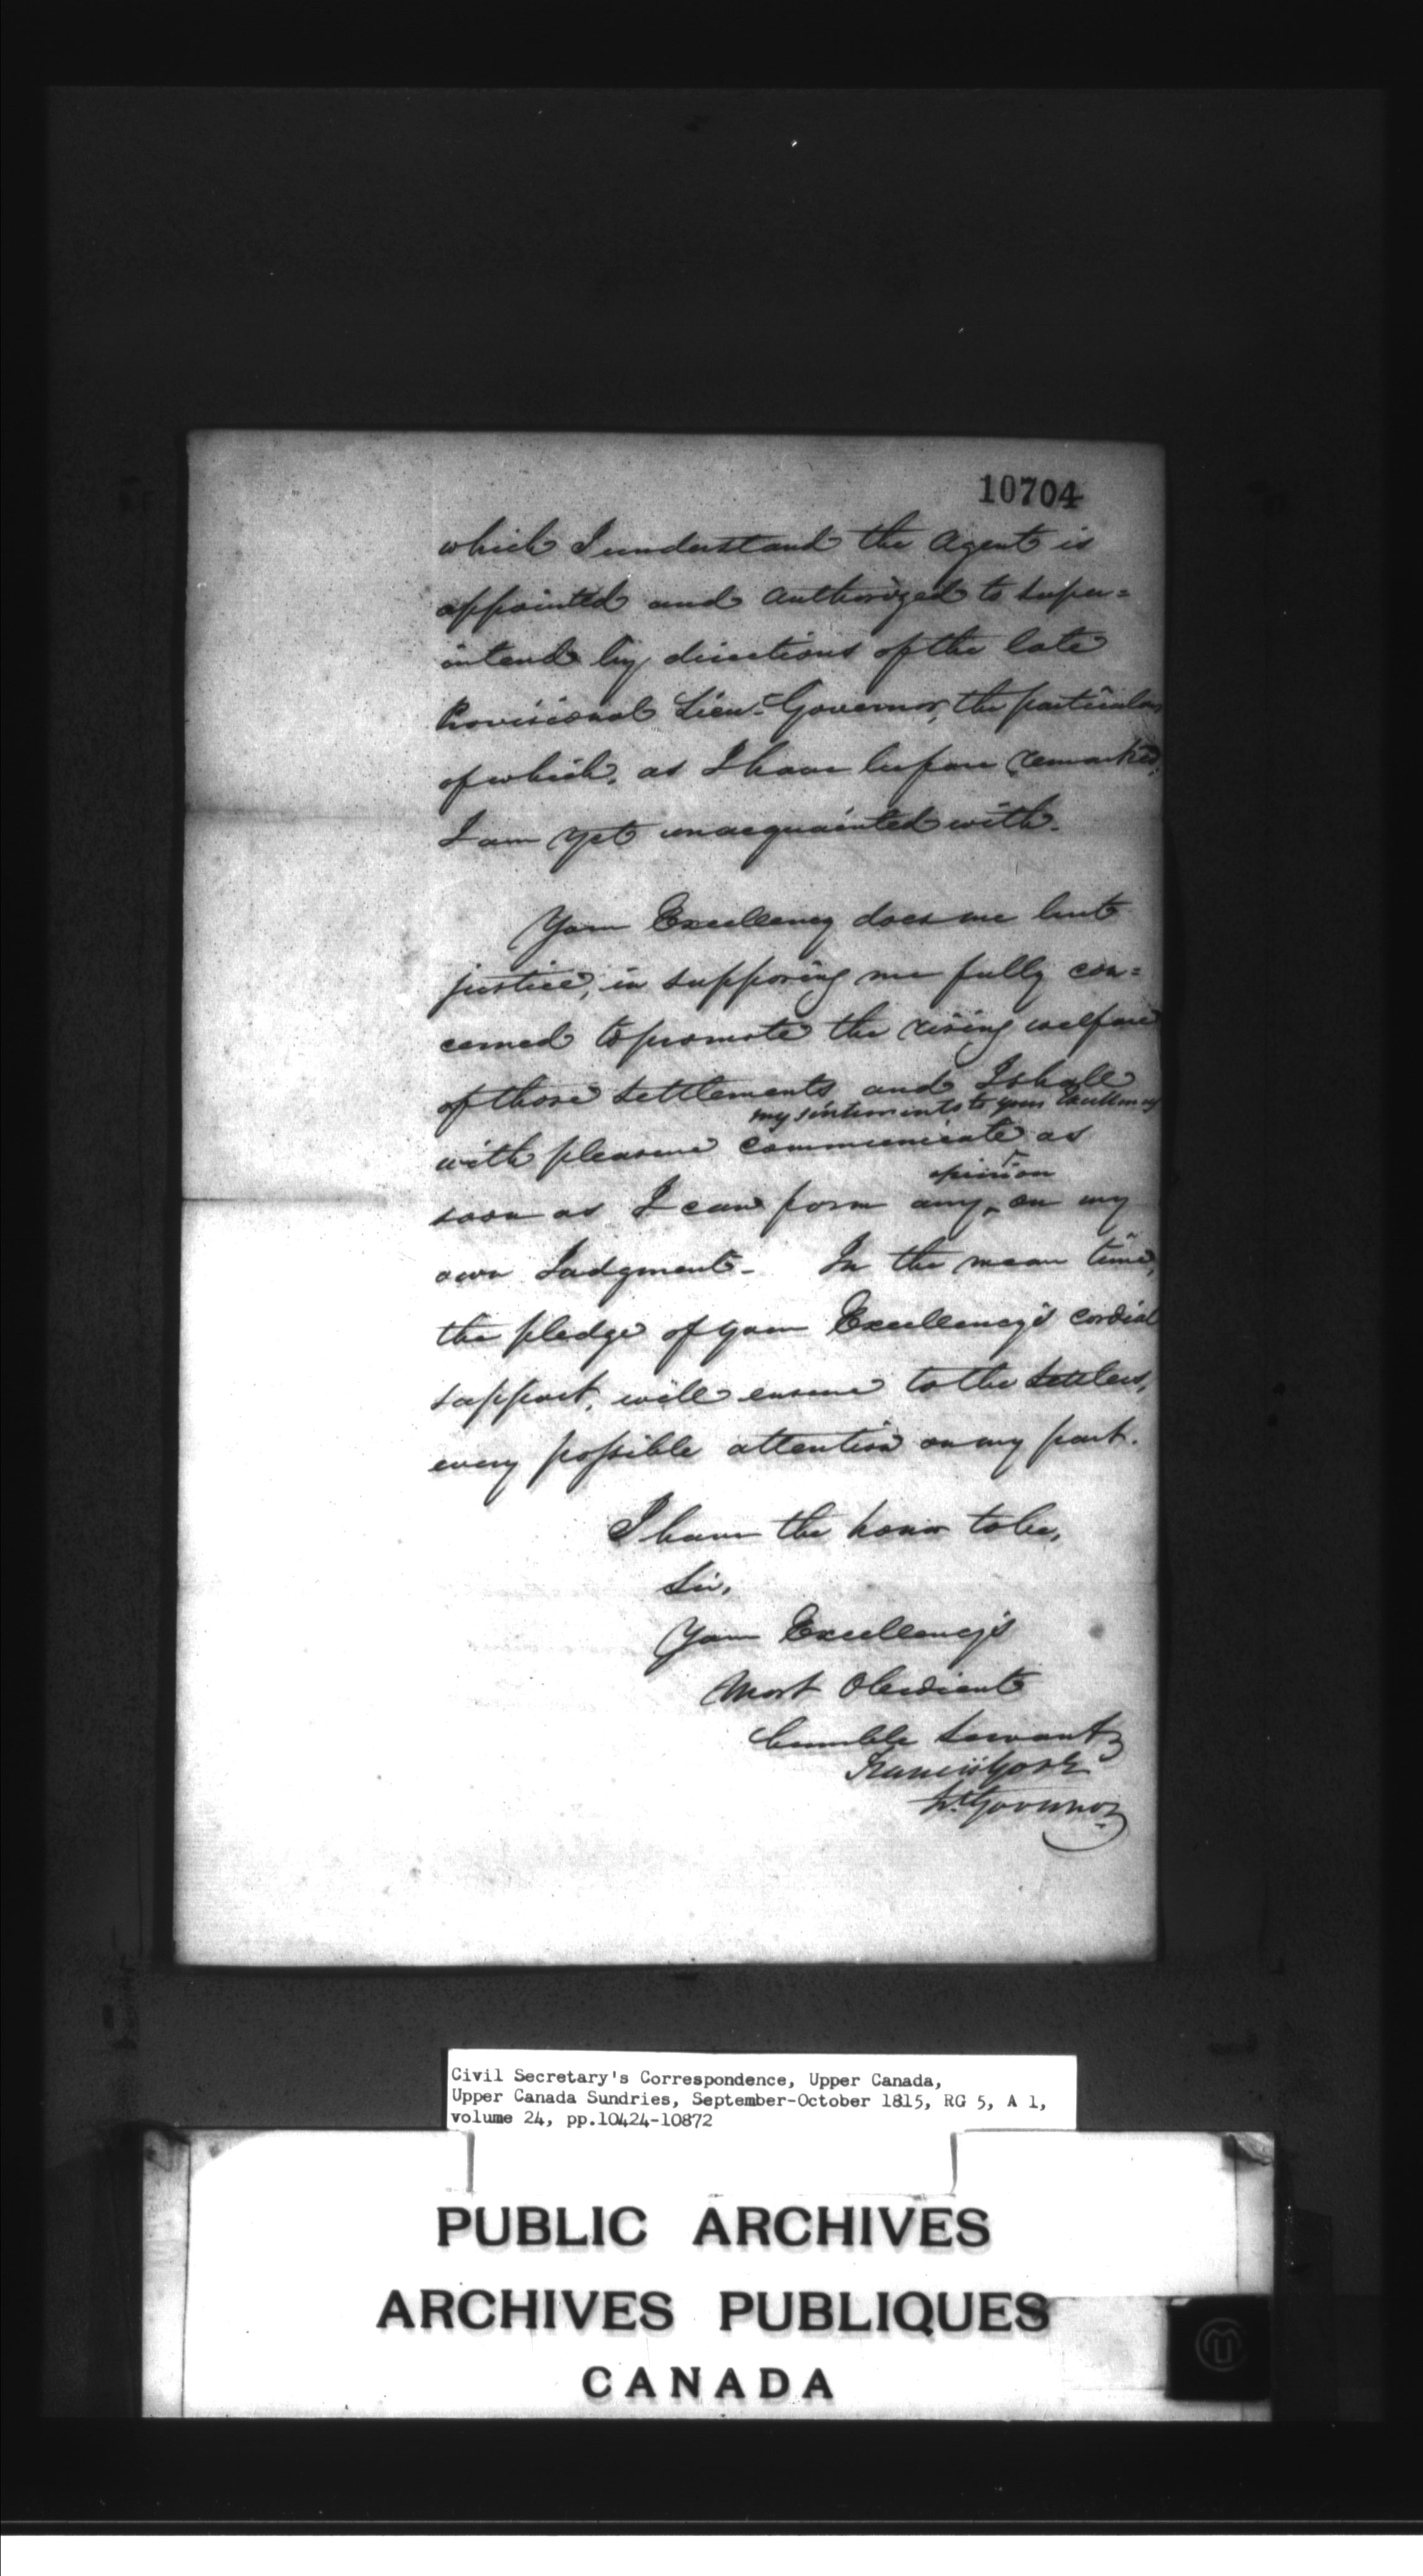 10704
which I understand the Agent is
appointed and authorized to super=
intend by directions of the late
Provisional Lieu.t Governor, the particulars
of which, as I have before remarked,
I am yet unacquainted with.
Your Excellency does me but
justice, in supposing me fully con=
cerned to promote the rising welfare
of those settlements and I shall
my sentiments to your Excellency
with pleasure communicate as
opinion
soon as I can form any ^ on my
own Judgment - In the mean time,
the pledge of your Excellency's cordial
support, will ensure to the Settlers,
every possible attention on my part.
I have the honor to be,
Sir,
Your Excellency's
Most Obedient
humble Servant
Francis Gore
Lt. Governor
Civil Secretary's Correspondence, Upper Canada,
Upper Canada Sundries, September-October 1815, RG 5, A 1,
volume 24, pp.10424-10872
PUBLIC ARCHIVES
ARCHIVES PUBLIQUES
CANADA